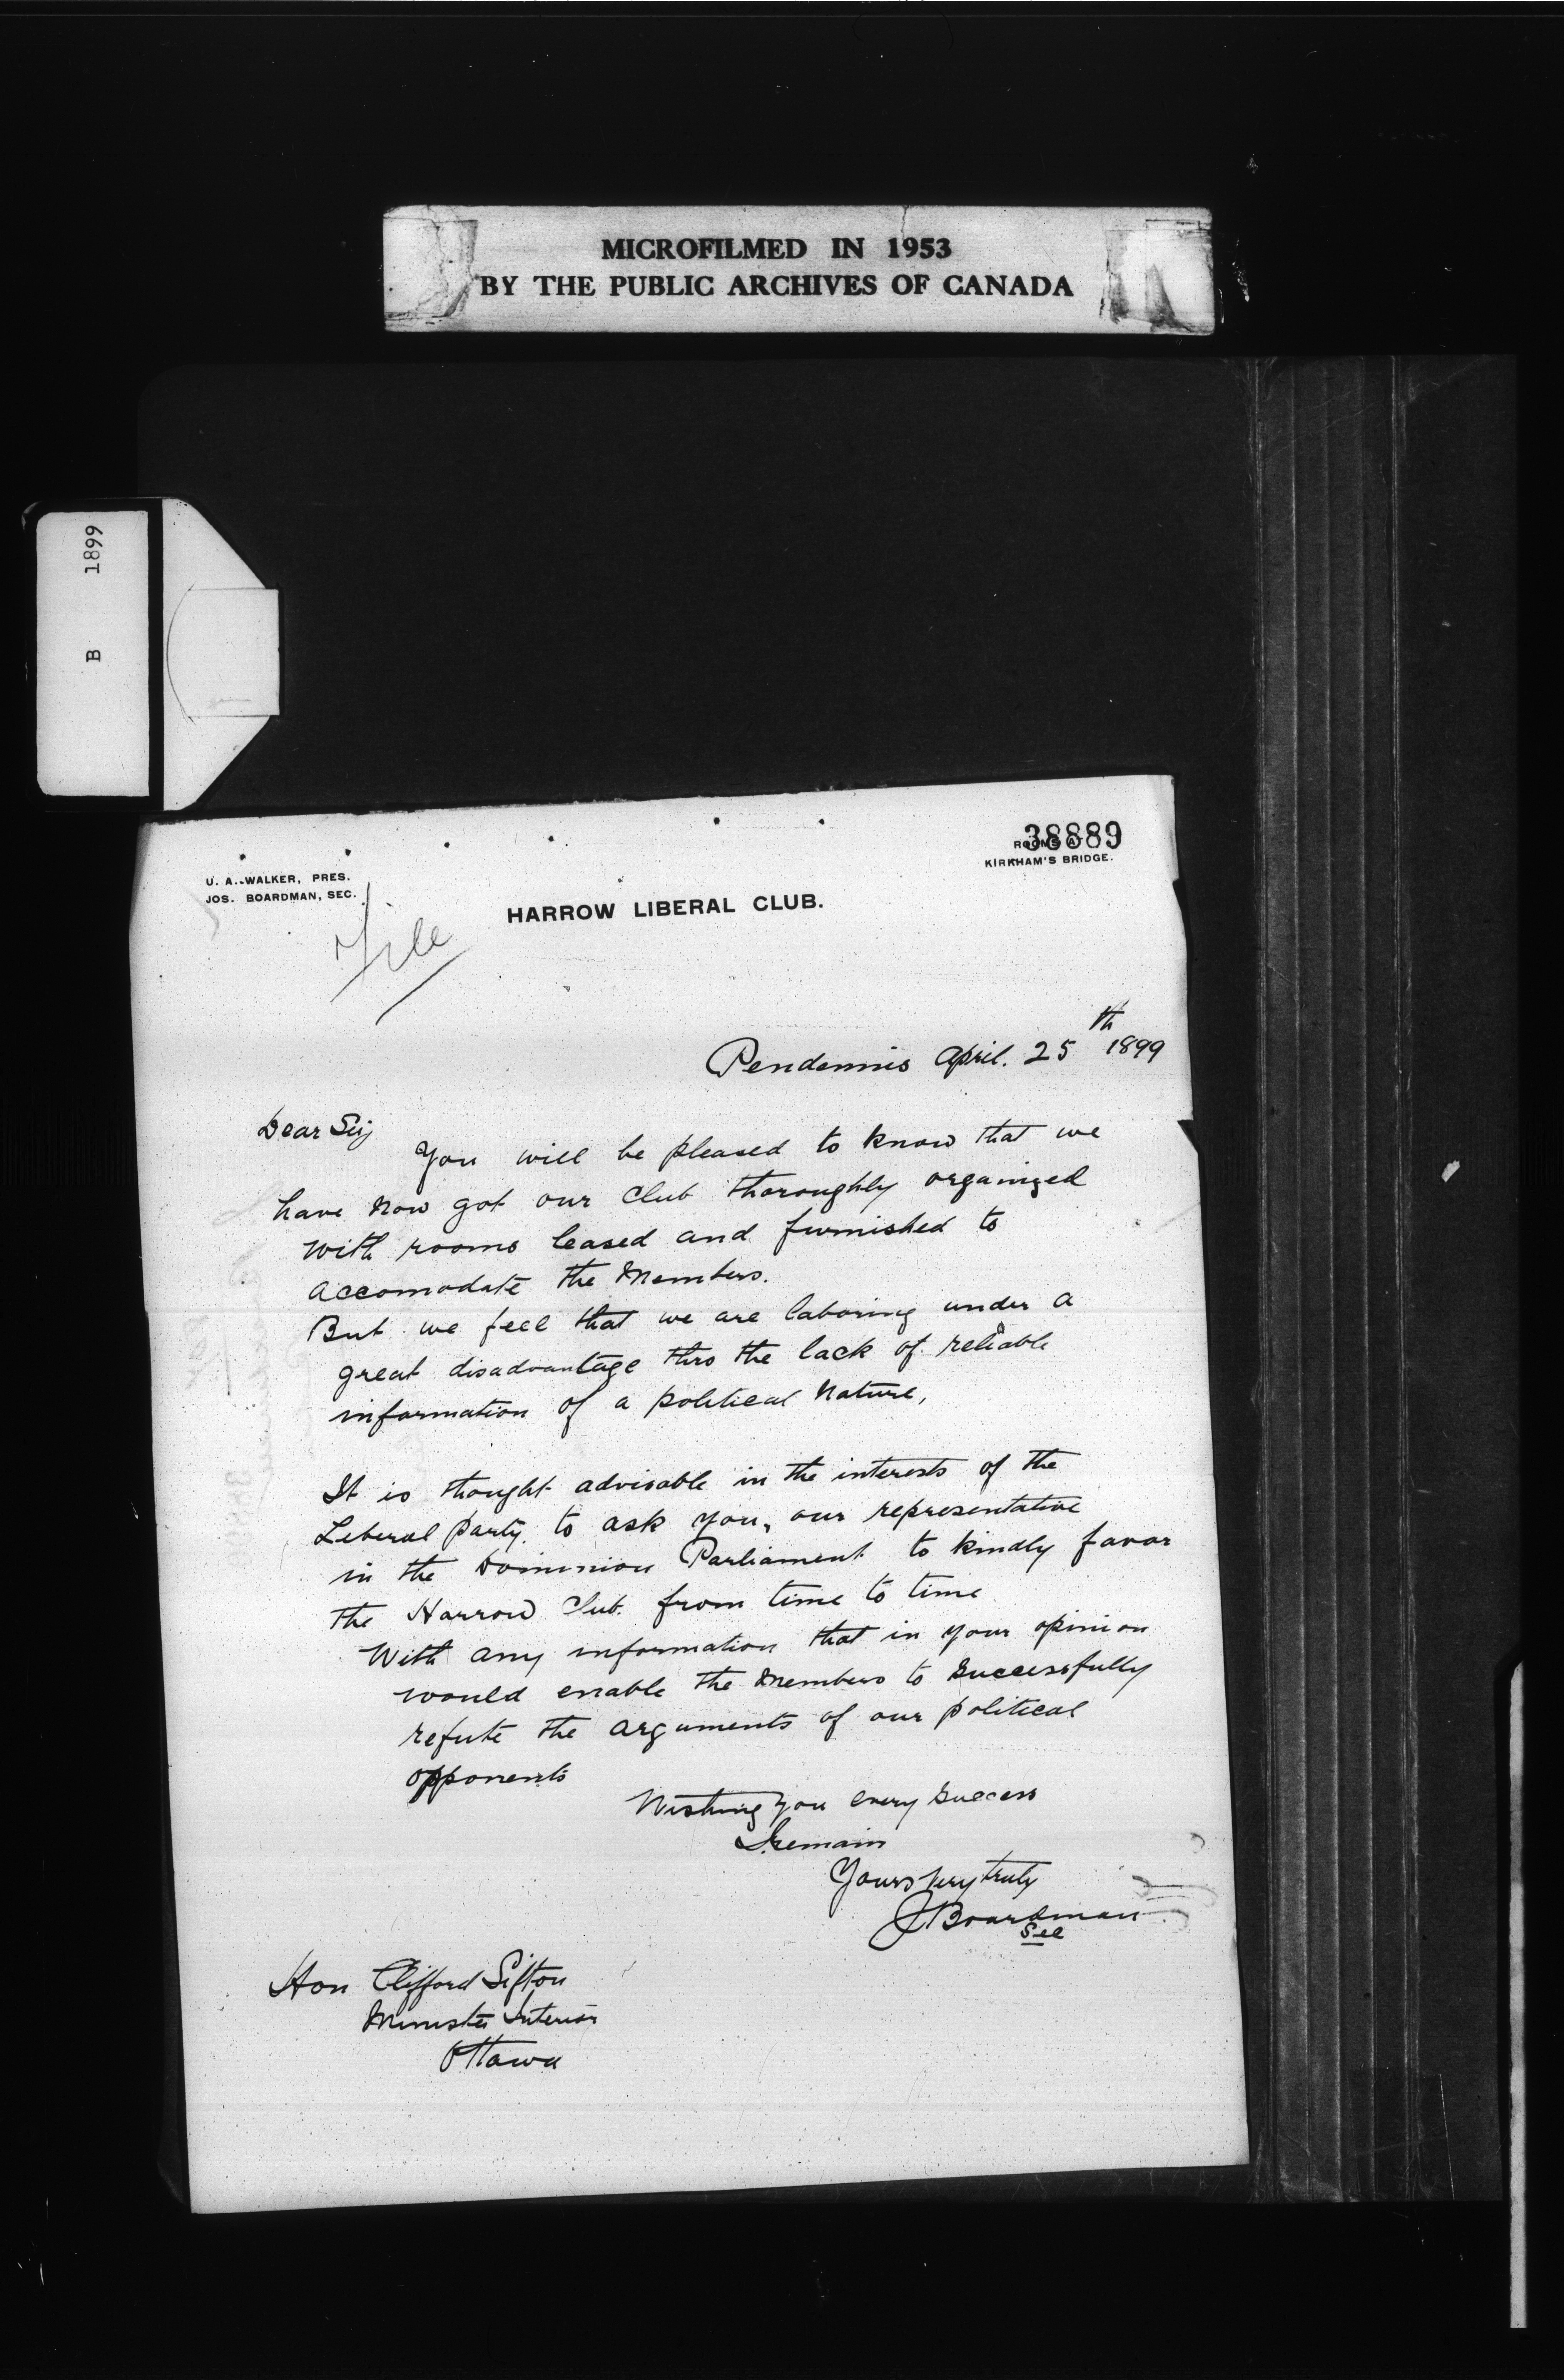 MICROFILMED IN 1953
BY THE PUBLIC ARCHIVES OF CANADA
B 1899
38889
ROOMS AT
KIRKHAM'S BRIDGE.
U. A. WALKER, PRES.
JOS. BOARDMAN, SEC.
HARROW LIBERAL CLUB.
File
Pendennis April. 25th 1899
Dear Sir
You will be pleased to know that we
have now got our Club thoroughly organized
with rooms leased and furnished to
accomodate the Members.
But we feel that we are laboring under a
great disadvantage thro the lack of reliable
information of a political nature,
It is thought advisable in the interests of the
Liberal party. to ask you, our representative
in the Dominion Parliament to kindly favor
the Harrow Club. from time to time
With any information that in your opinion
would enable the Members to successfully
refute the arguments of our political
opponents
Wishing you every success
I remain
Yours very truly
J Boardman
Sec
Hon Clifford Sifton
Minister Interior
Ottawa